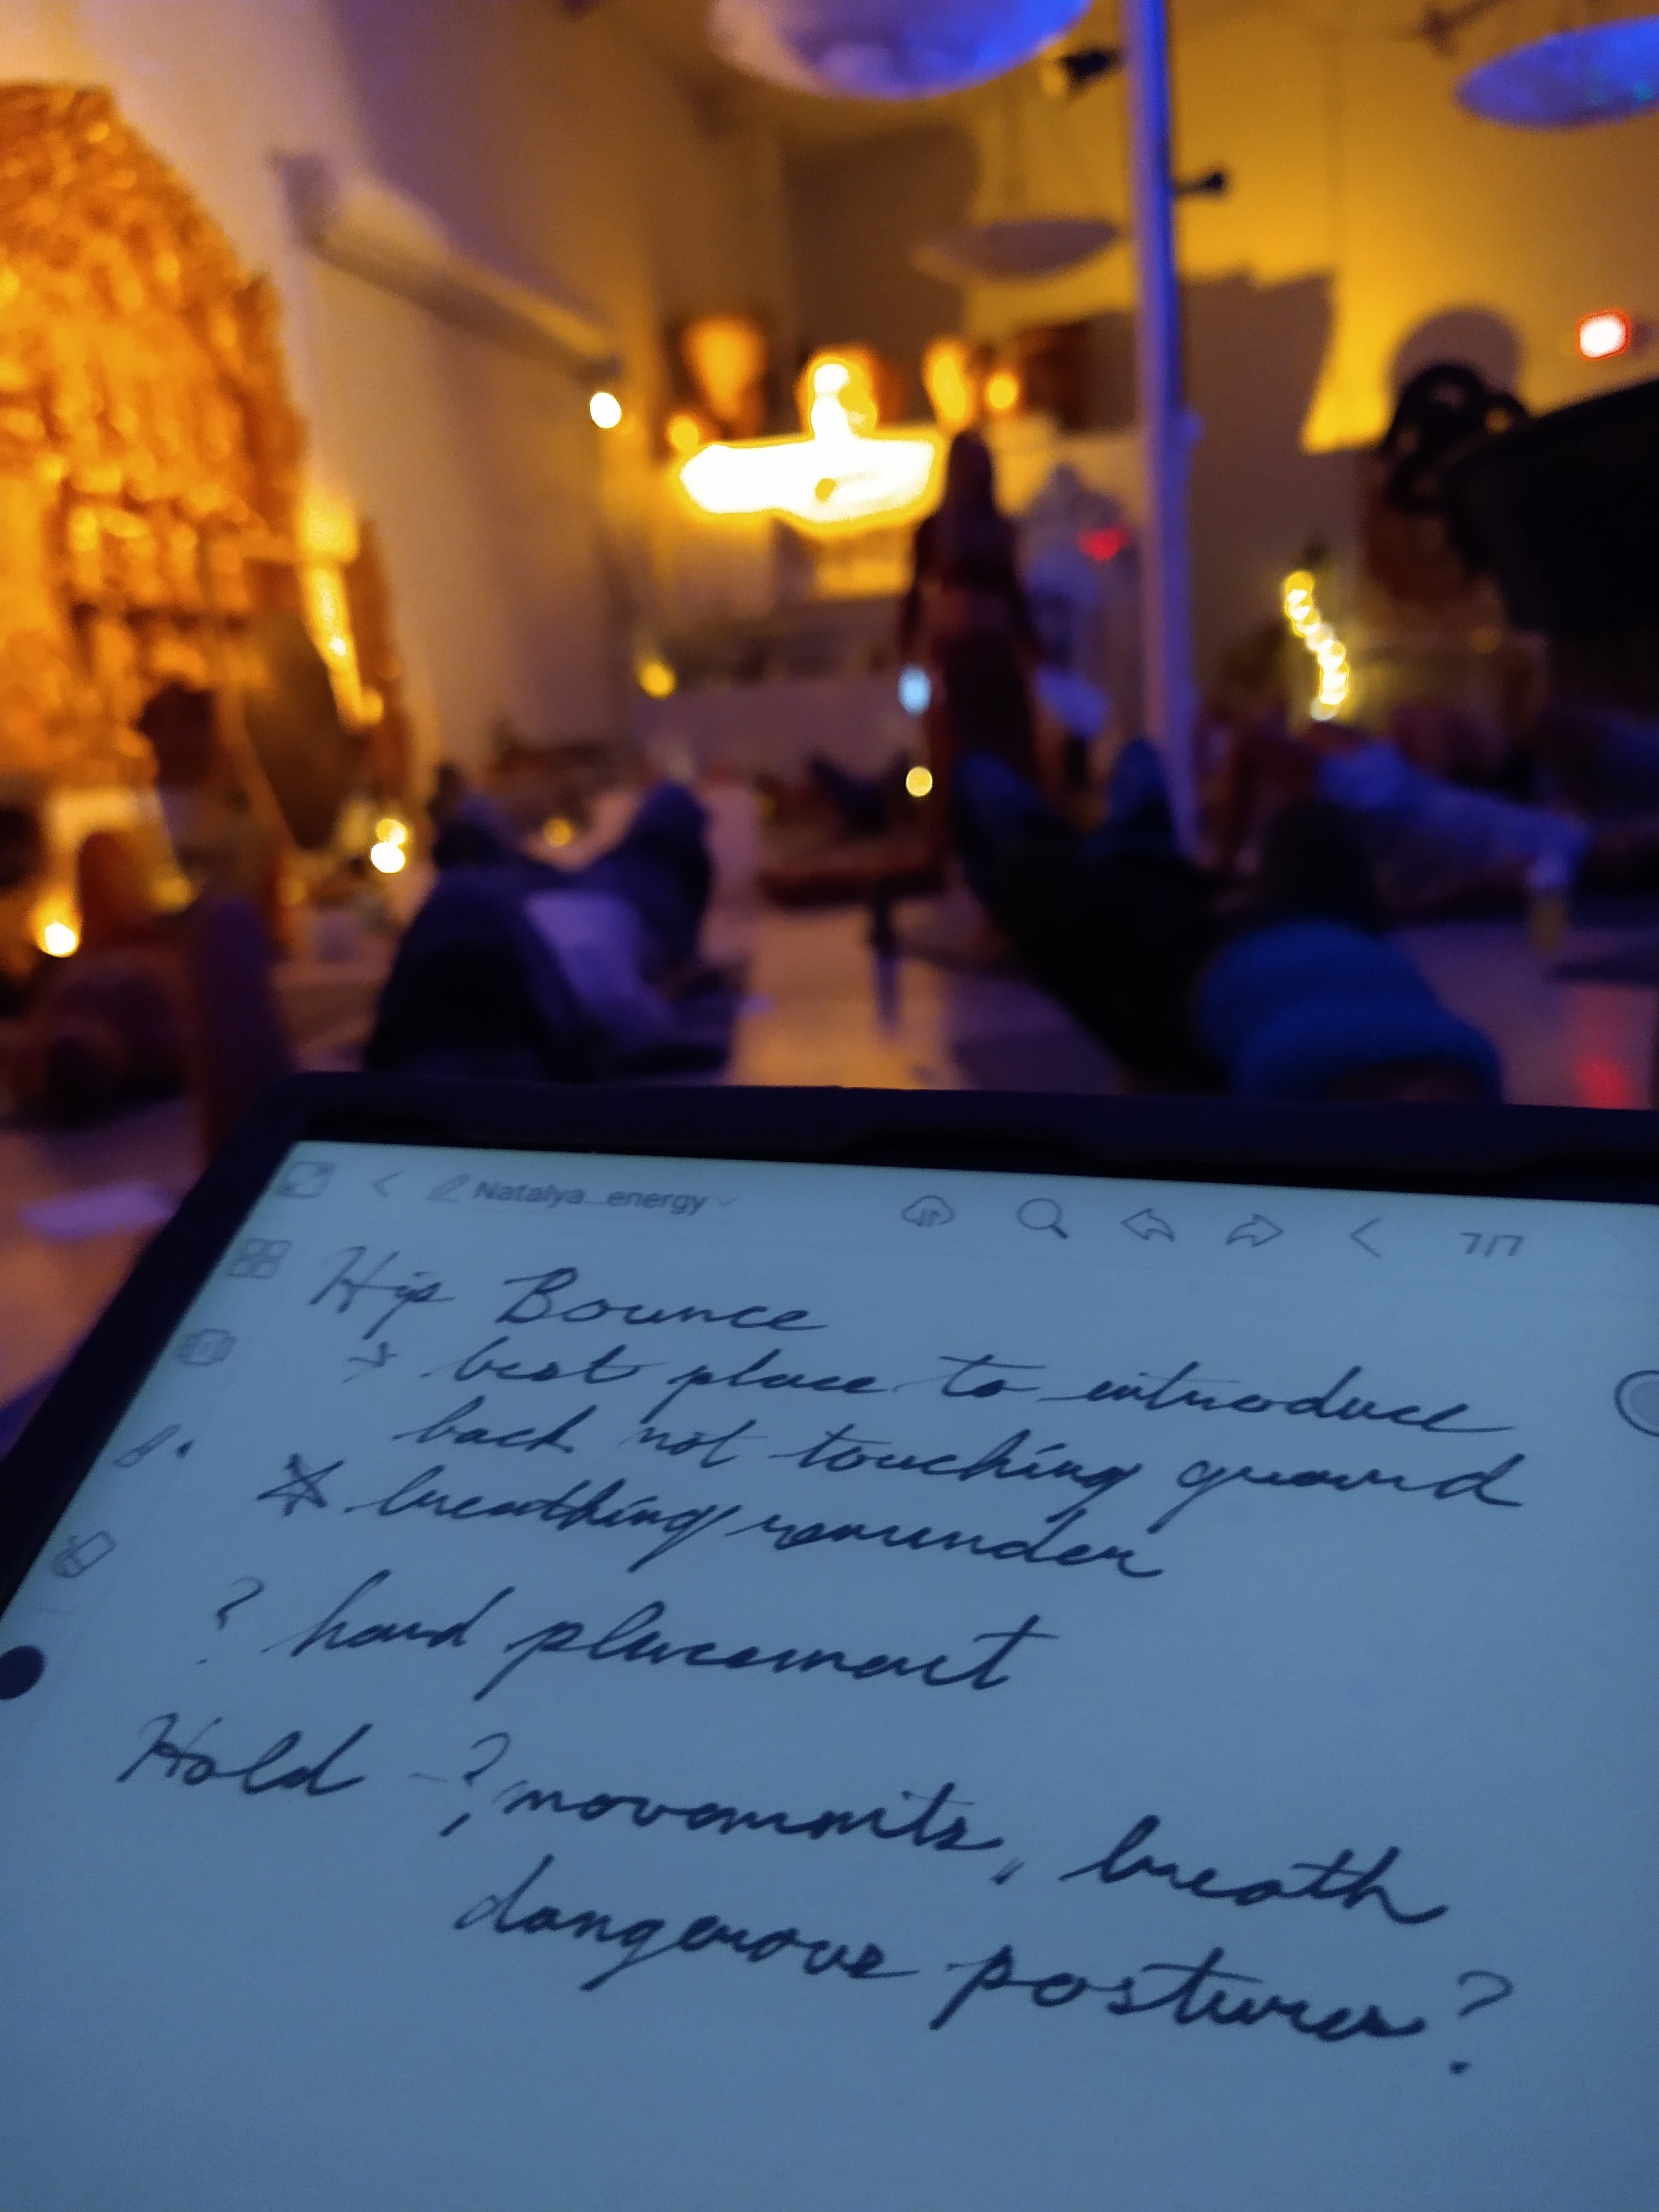 Natalya_energy
7/7
Hip Bounce
→ best place to introduce
back not touching guound
☆ breathing reminder
? hand placement
Hold - ? movements, breath
dangerous postures?